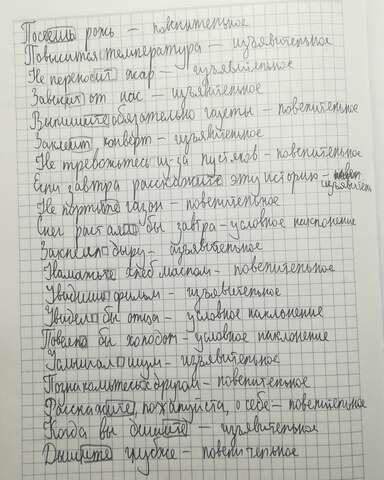 Посеешь рожь – повелительное
Повысится температура – изъявительное
Не переносит жар – изъявительное
Зависит от нас – изъявительное
Выпишите обязательно газеты – повелительное
Заклеит конверт – изъявительное
Не тревожьтесь из-за пустяков – повелительное
Если завтра расскажите эту историю –
изъявител
Не портите газон – повелительное
Снег растаял бы завтра – условное наклонение
дыру – изъявительное
Намажьте хлеб маслом – повелительное
Увидишь фильм – изъявительное
Увидел бы отца – условное наклонение
Повеял бы холодом – условное наклонение
Услышал шум – изъявительное
Познакомьтесь с другом – повелительное
Расскажите, пожалуйста, о себе – повелительное
Когда вы дышите – изъявительное
Дышите глубже – повелительное